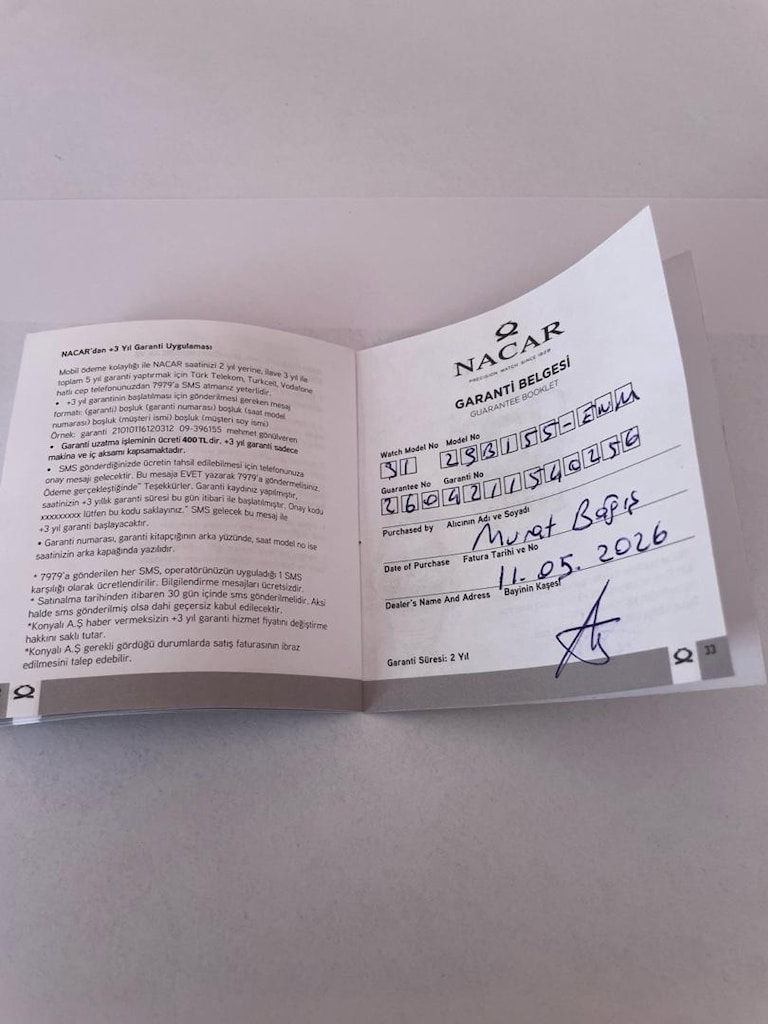 NACAR'dan +3 Yıl Garanti Uygulaması
Mobil ödeme kolaylığı ile NACAR saatinizi 2 yıl yerine, ilave 3 yıl ile
toplam 5 yıl garanti yaptırmak için Türk Telekom, Turkcell, Vodafone
hatlı cep telefonunuzdan 7979'a SMS atmanız yeterlidir.
• +3 yıl garantinin başlatılması için gönderilmesi gereken mesaj
formatı: (garanti) boşluk (garanti numarası) boşluk (saat model
numarası) boşluk (müşteri ismi) boşluk (müşteri soy ismi)
Örnek: garanti 210101116120312 09-396155 mehmet gönülveren
• Garanti uzatma işleminin ücreti 400 TL.dir. +3 yıl garanti sadece
makina ve iç aksamı kapsamaktadır.
• SMS gönderdiğinizde ücretin tahsil edilebilmesi için telefonunuza
onay mesajı gelecektir. Bu mesaja EVET yazarak 7979'a göndermelisiniz.
Ödeme gerçekleştiğinde" Teşekkürler. Garanti kaydınız yapılmıştır,
saatinizin +3 yıllık garanti süresi bu gün itibari ile başlatılmıştır. Onay kodu
xxxxxxxxx lütfen bu kodu saklayınız." SMS gelecek bu mesaj ile
+3 yıl garanti başlayacaktır.
• Garanti numarası, garanti kitapçığının arka yüzünde, saat model no ise
saatinizin arka kapağında yazılıdır.
* 7979'a gönderilen her SMS, operatörünüzün uyguladığı 1 SMS
karşılığı olarak ücretlendirilir. Bilgilendirme mesajları ücretsizdir.
* Satınalma tarihinden itibaren 30 gün içinde sms gönderilmelidir. Aksi
halde sms gönderilmiş olsa dahi geçersiz kabul edilecektir.
*Konyalı A.Ş haber vermeksizin +3 yıl garanti hizmet fiyatını değiştirme
hakkını saklı tutar.
*Konyalı A.Ş gerekli gördüğü durumlarda satış faturasının ibraz
edilmesini talep edebilir.
NACAR
PRECISION WATCH SINCE 1829
GARANTİ BELGESİ
GUARANTEE BOOKLET
Watch Model No Model No
31 29B155-ENM
Guarantee No Garanti No
2604211540256
Purchased by Alıcının Adı ve Soyadı
Murat Bağış
Date of Purchase Fatura Tarihi ve No
11.05.2026
Dealer's Name And Adress Bayinin Kaşesi
Garanti Süresi: 2 Yıl
33